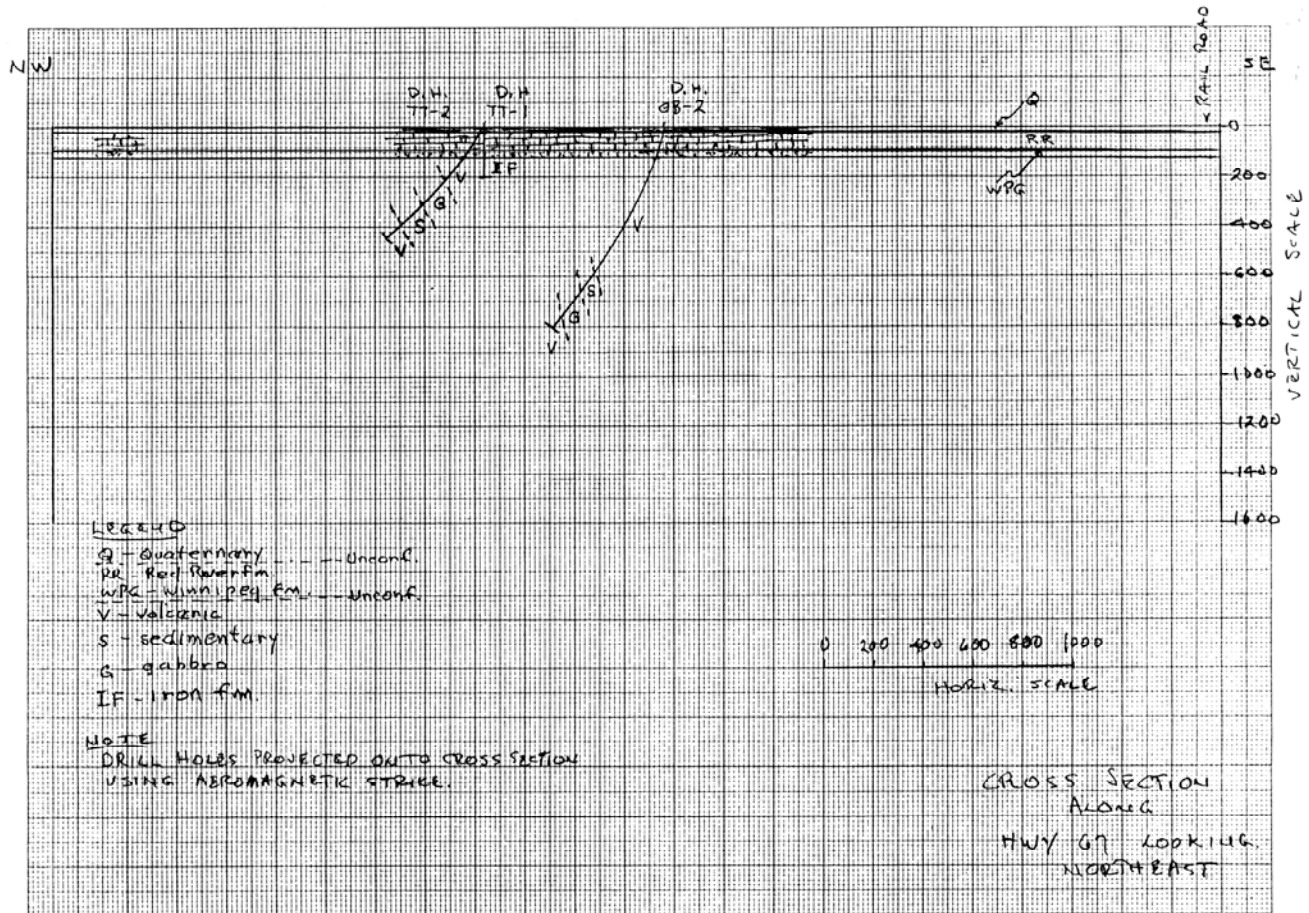 NW
SE
RAIL ROAD
D.H.
TT-2
D.H
TT-1
D.H.
GB-2
Q
RR
WPG
IF
V
G
S
V
V
S
G
V
0
200
400
600
800
1000
1200
1400
1600
VERTICAL SCALE
LEGEND
Q - Quaternary - - - - Unconf.
RR Red River Fm
WPG - Winnipeg Fm. - - - Unconf.
V - Volcanic
S - sedimentary
G - gabbro
IF - Iron fm.
0 200 400 600 800 1000
HORIZ. SCALE
NOTE
DRILL HOLES PROJECTED ONTO CROSS SECTION
USING AEROMAGNETIC STRIKE.
CROSS SECTION
ALONG
HWY 67 LOOKING
NORTHEAST